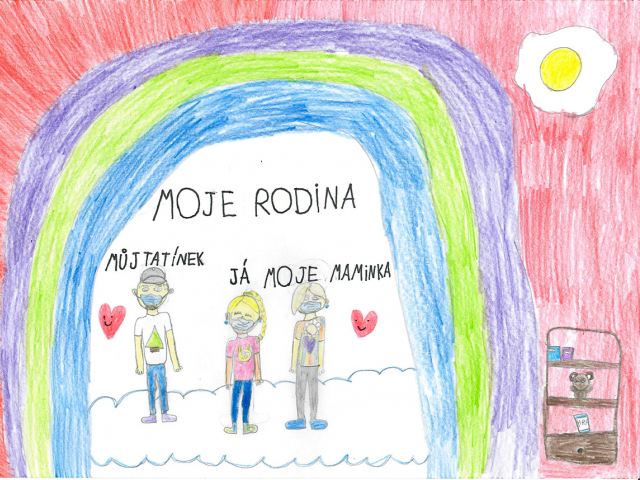 MOJE RODINA
MŮJ TATÍNEK
JÁ
MOJE MAMINKA